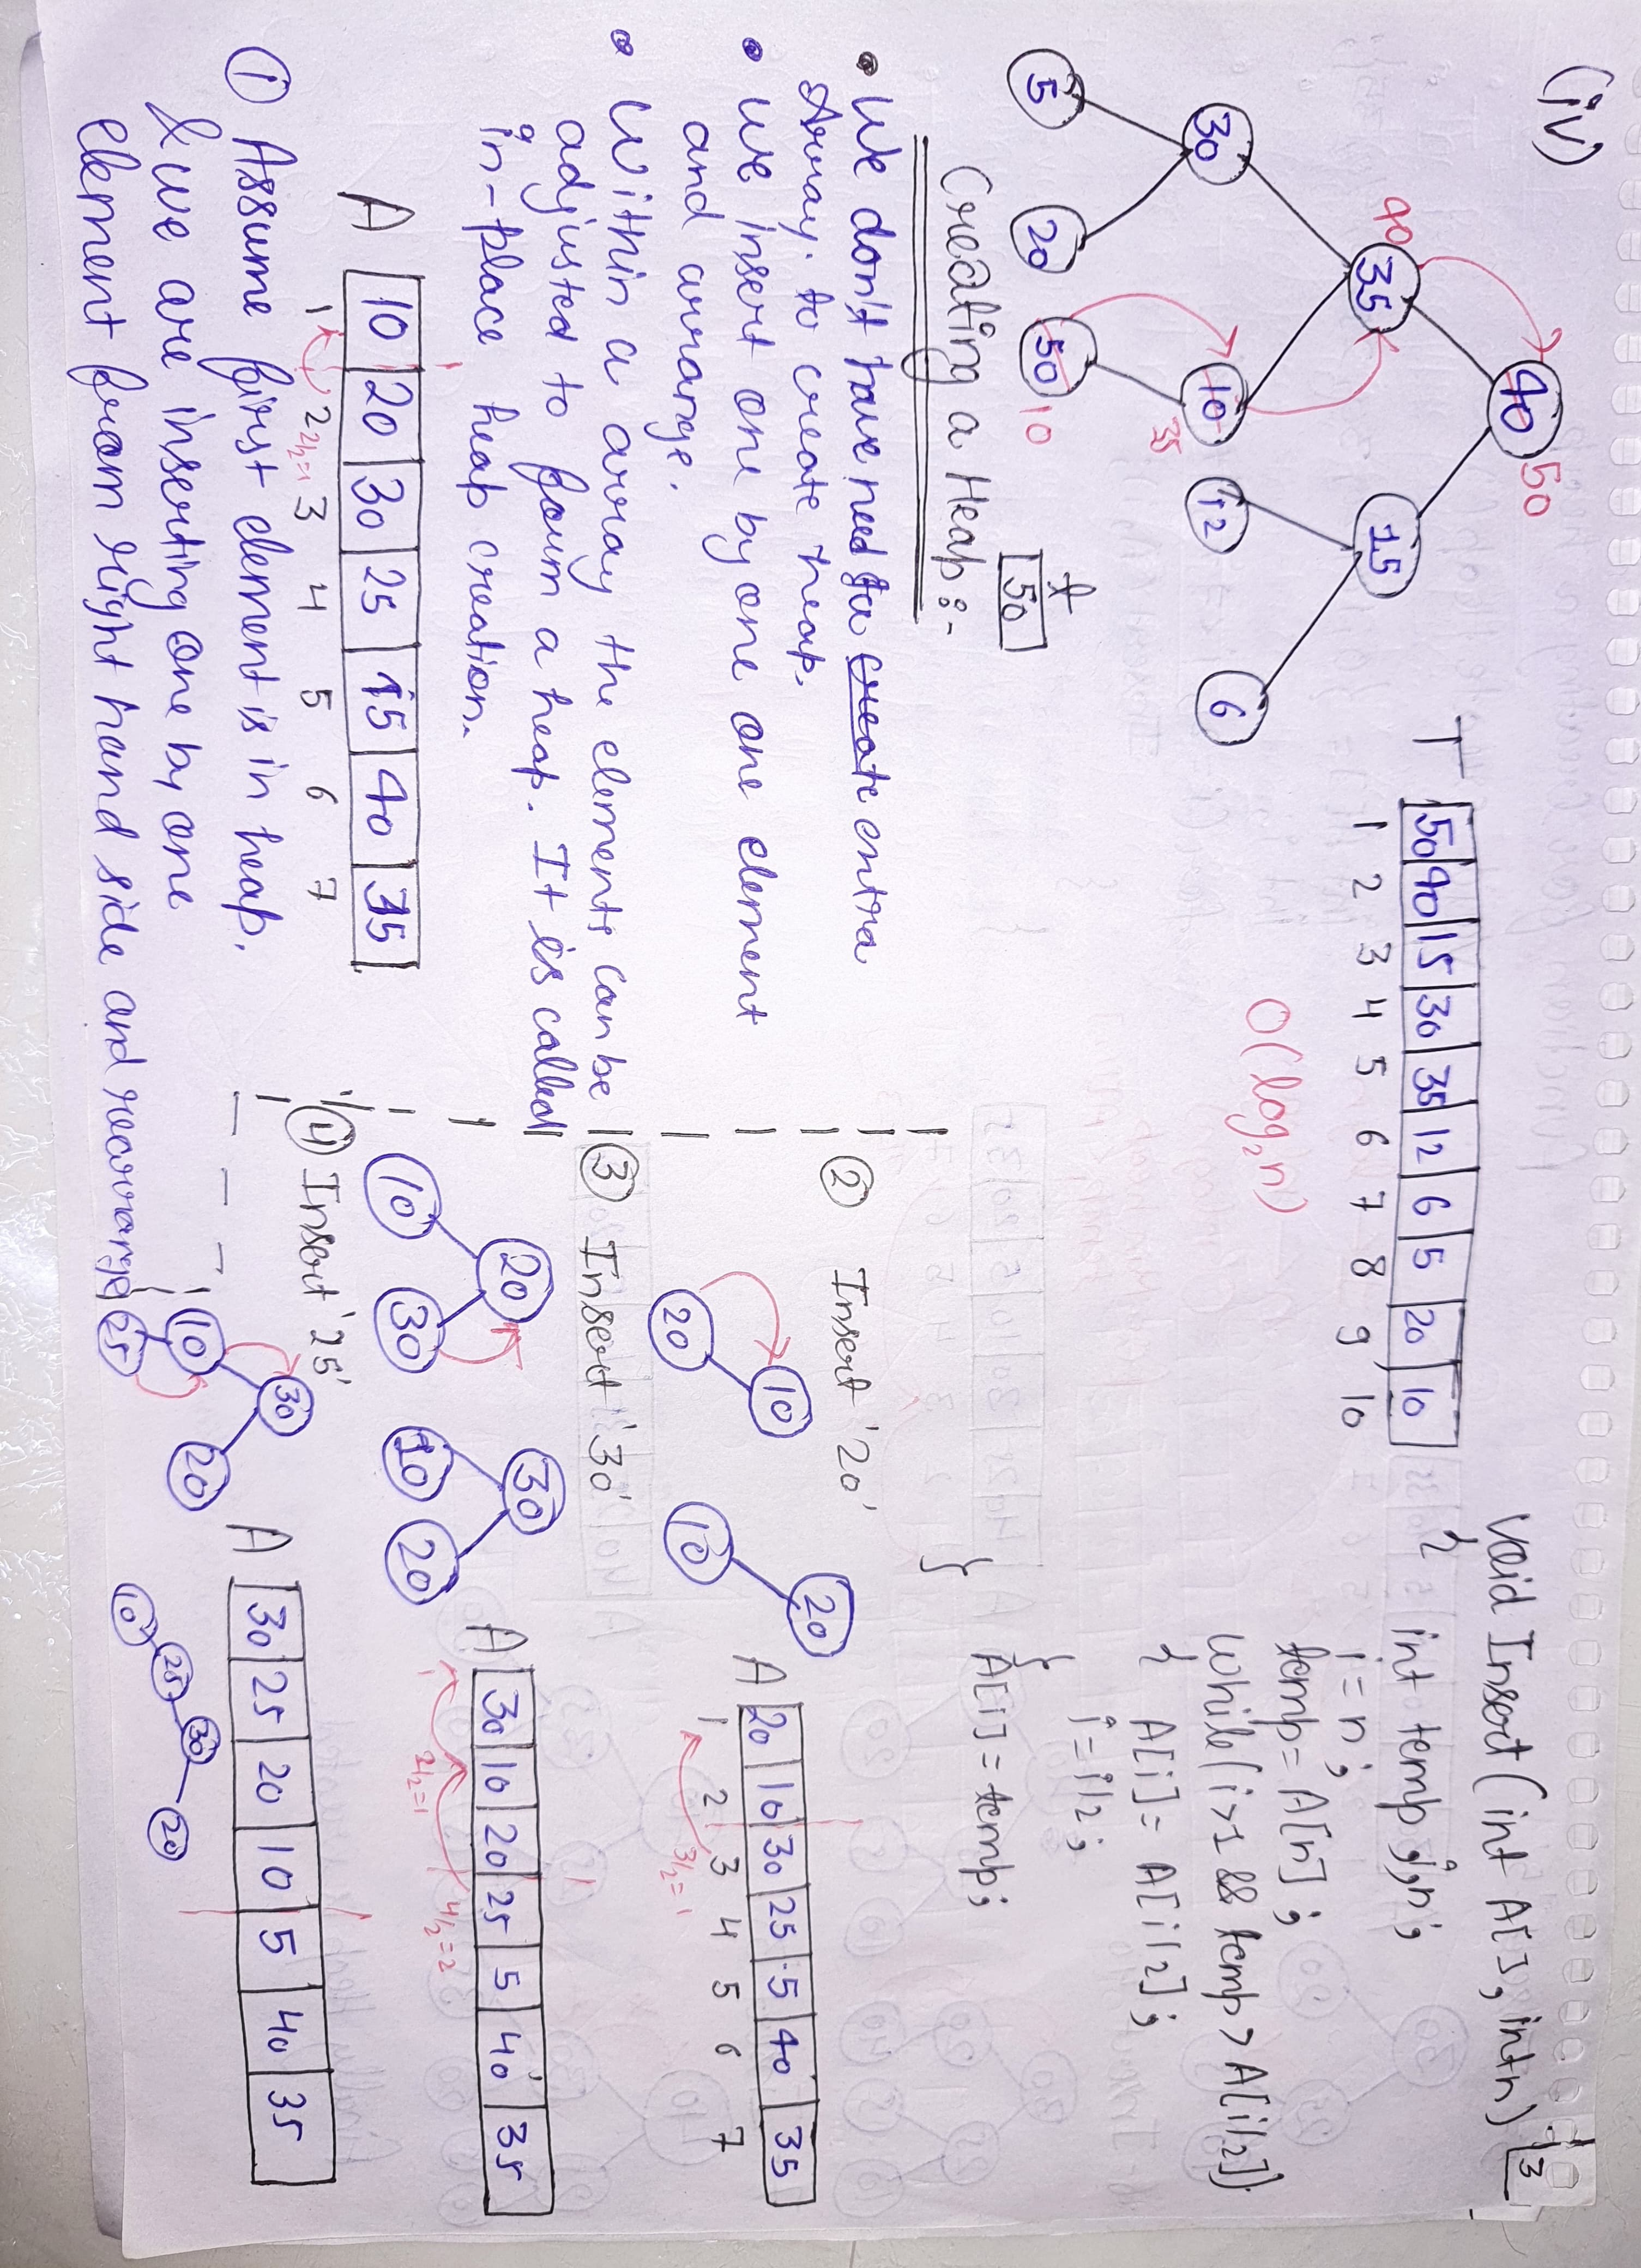 (iv)
3
40 50
40 35 15
30 10 12 6
35
5 20 50 10
t
50
T 50 40 15 30 35 12 6 5 20 10
1 2 3 4 5 6 7 8 9 10
O(log₂n)
void Insert(int A[], int n)
{
int temp, i, n;
i=n;
temp= A[n];
while(i>1 && temp> A[i/2])
{ A[i]= A[i/2];
i=i/2;
}
A[i]=temp;
}
Creating a Heap:-
• We don't have need for create extra
Array. to create heap.
• We insert one by one one element
and arrange.
• Within a array the elements can be
adjusted to form a heap. It is called
in-place heap creation.
A 10 20 30 25 15 40 35
1 2 2/2=1 3 4 5 6 7
① Assume first element is in heap.
& we are inserting one by one
element from right hand side and rearrange
② Insert '20'
10
20
20
10
A 20 10 30 25 5 40 35
1 2 3 4 5 6 7
3/2=1
③ Insert '30'
20
10 30
30
10 20
A 30 10 20 25 5 40 35
1 2/2=1 4/2=2
④ Insert '25'
30
10 20
25
A 30 25 20 10 5 40 35
30
25 20
10